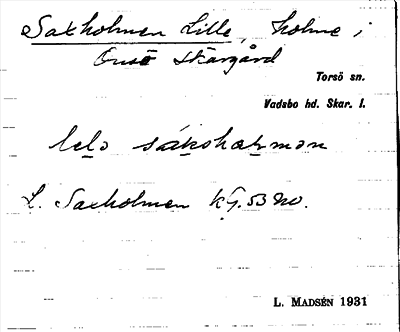 Saxholmen Lille, holme i
Onsö skärgård
Torsö sn.
Vadsbo hd. Skar. l.
lela såksholman
L. Saxholmen kg. 53 no.
L. MADSÉN 1931